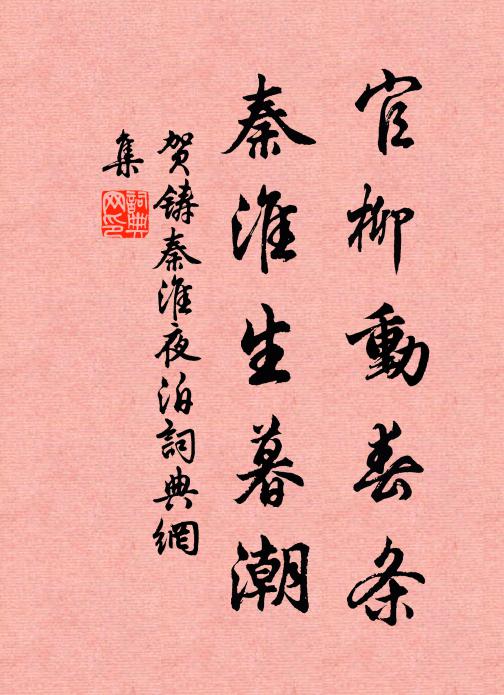 官柳動春条
秦淮生暮潮
賀鑄秦淮夜泊詞典網
集
詞典
网印